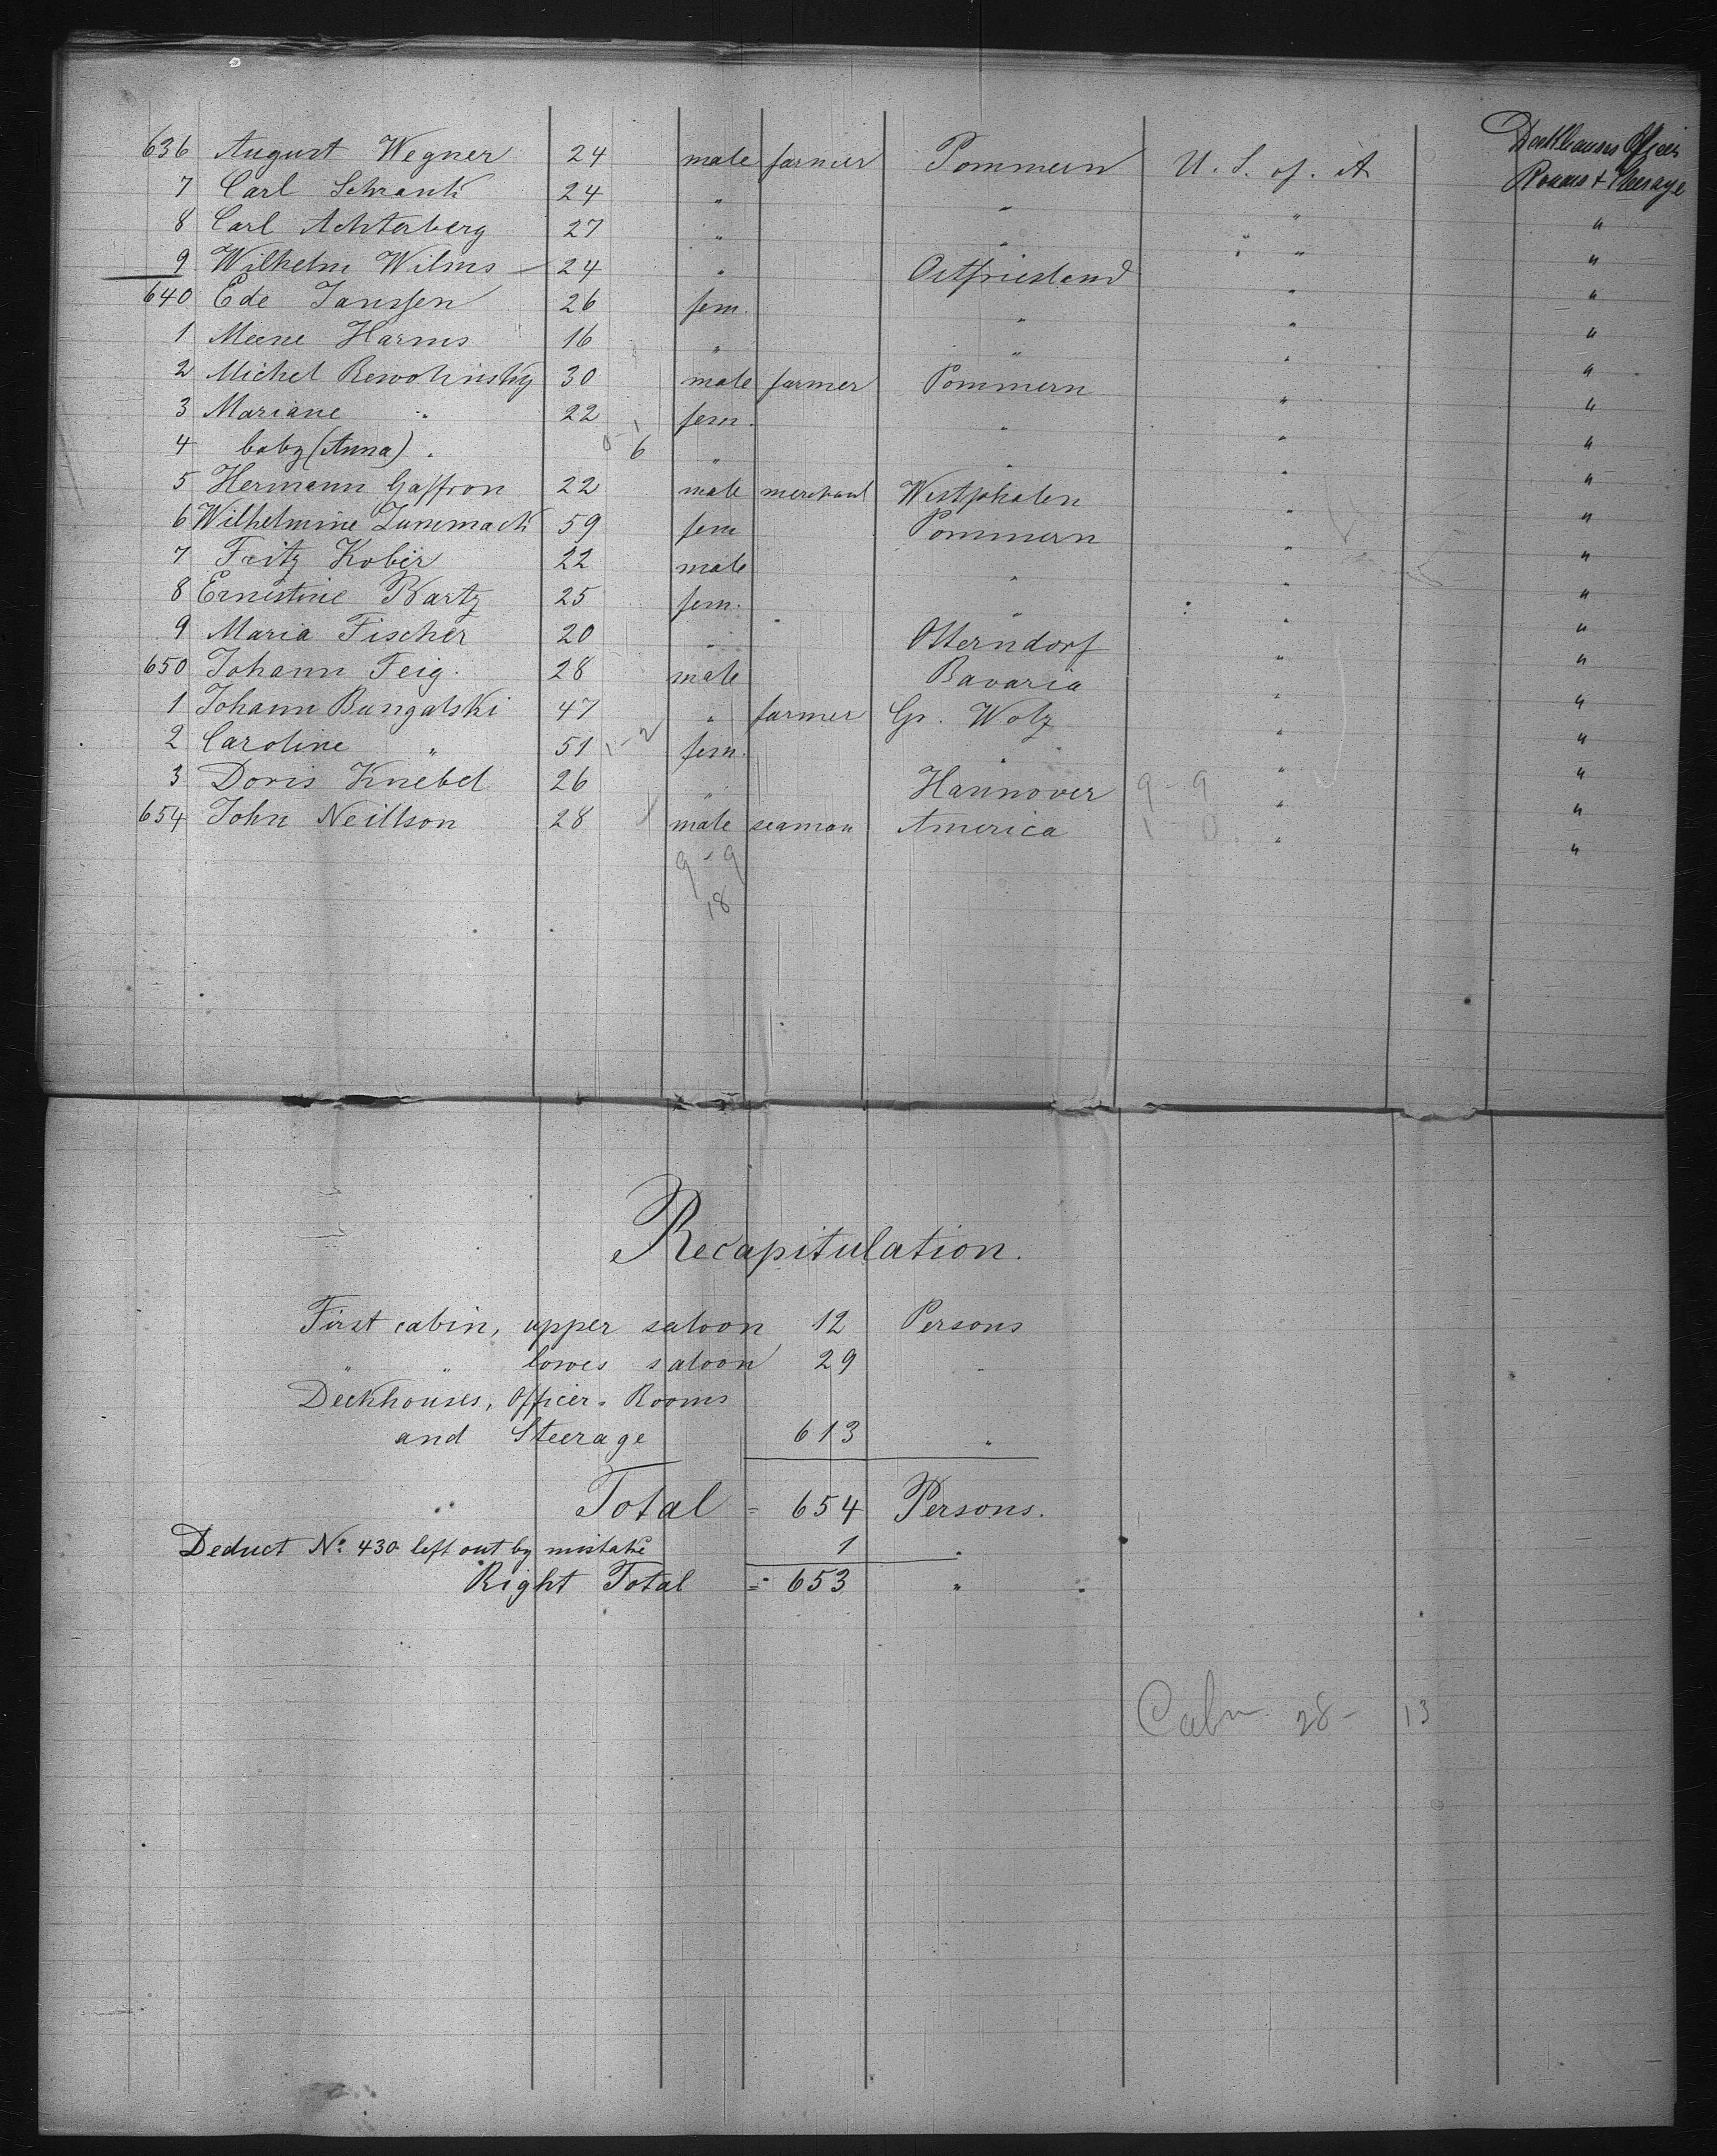 Deckhouses Officer
636 August Wegner 24 male farmer Pommern U. S. of. A Rooms + Steerage
7 Carl Schrank 24 " " " "
8 Carl Achterberg 27 " " " " "
9 Wilhelm Wilms 24 " Ostfriesland " " "
640 Ede Janssen 26 fem. " " "
1 Meene Harms 16 " " " "
2 Michel Rewolinsky 30 male farmer Pommern " "
3 Mariane " 22 fem. " " "
4 baby (Anna) " 6 " " " "
5 Hermann Gaffron 22 male merchant Westphalen " "
6 Wilhelmine Zummach 59 fem Pommern " "
7 Fritz Kobër 22 male " " "
8 Ernestine Bartz 25 fem. " " "
9 Maria Fischer 20 " Otterndorf " "
650 Johann Feig. 28 male Bavaria " "
1 Johann Bungalski 47 " farmer Gr. Wolz " "
2 Caroline " 51 1-2 fem. " " "
3 Doris Knebel 26 " Hannover 9-9 " "
654 John Neillson 28 1 male seaman America 1 0 " "
9-9
18
Recapitulation.
First cabin, upper saloon 12 Persons
" " lower saloon 29 "
Deckhouses, Officer. Rooms
and Steerage 613 "
Total = 654 Persons.
Deduct No. 430 left out by mistake 1 "
Right Total = 653 "
Cabn 28 - 13